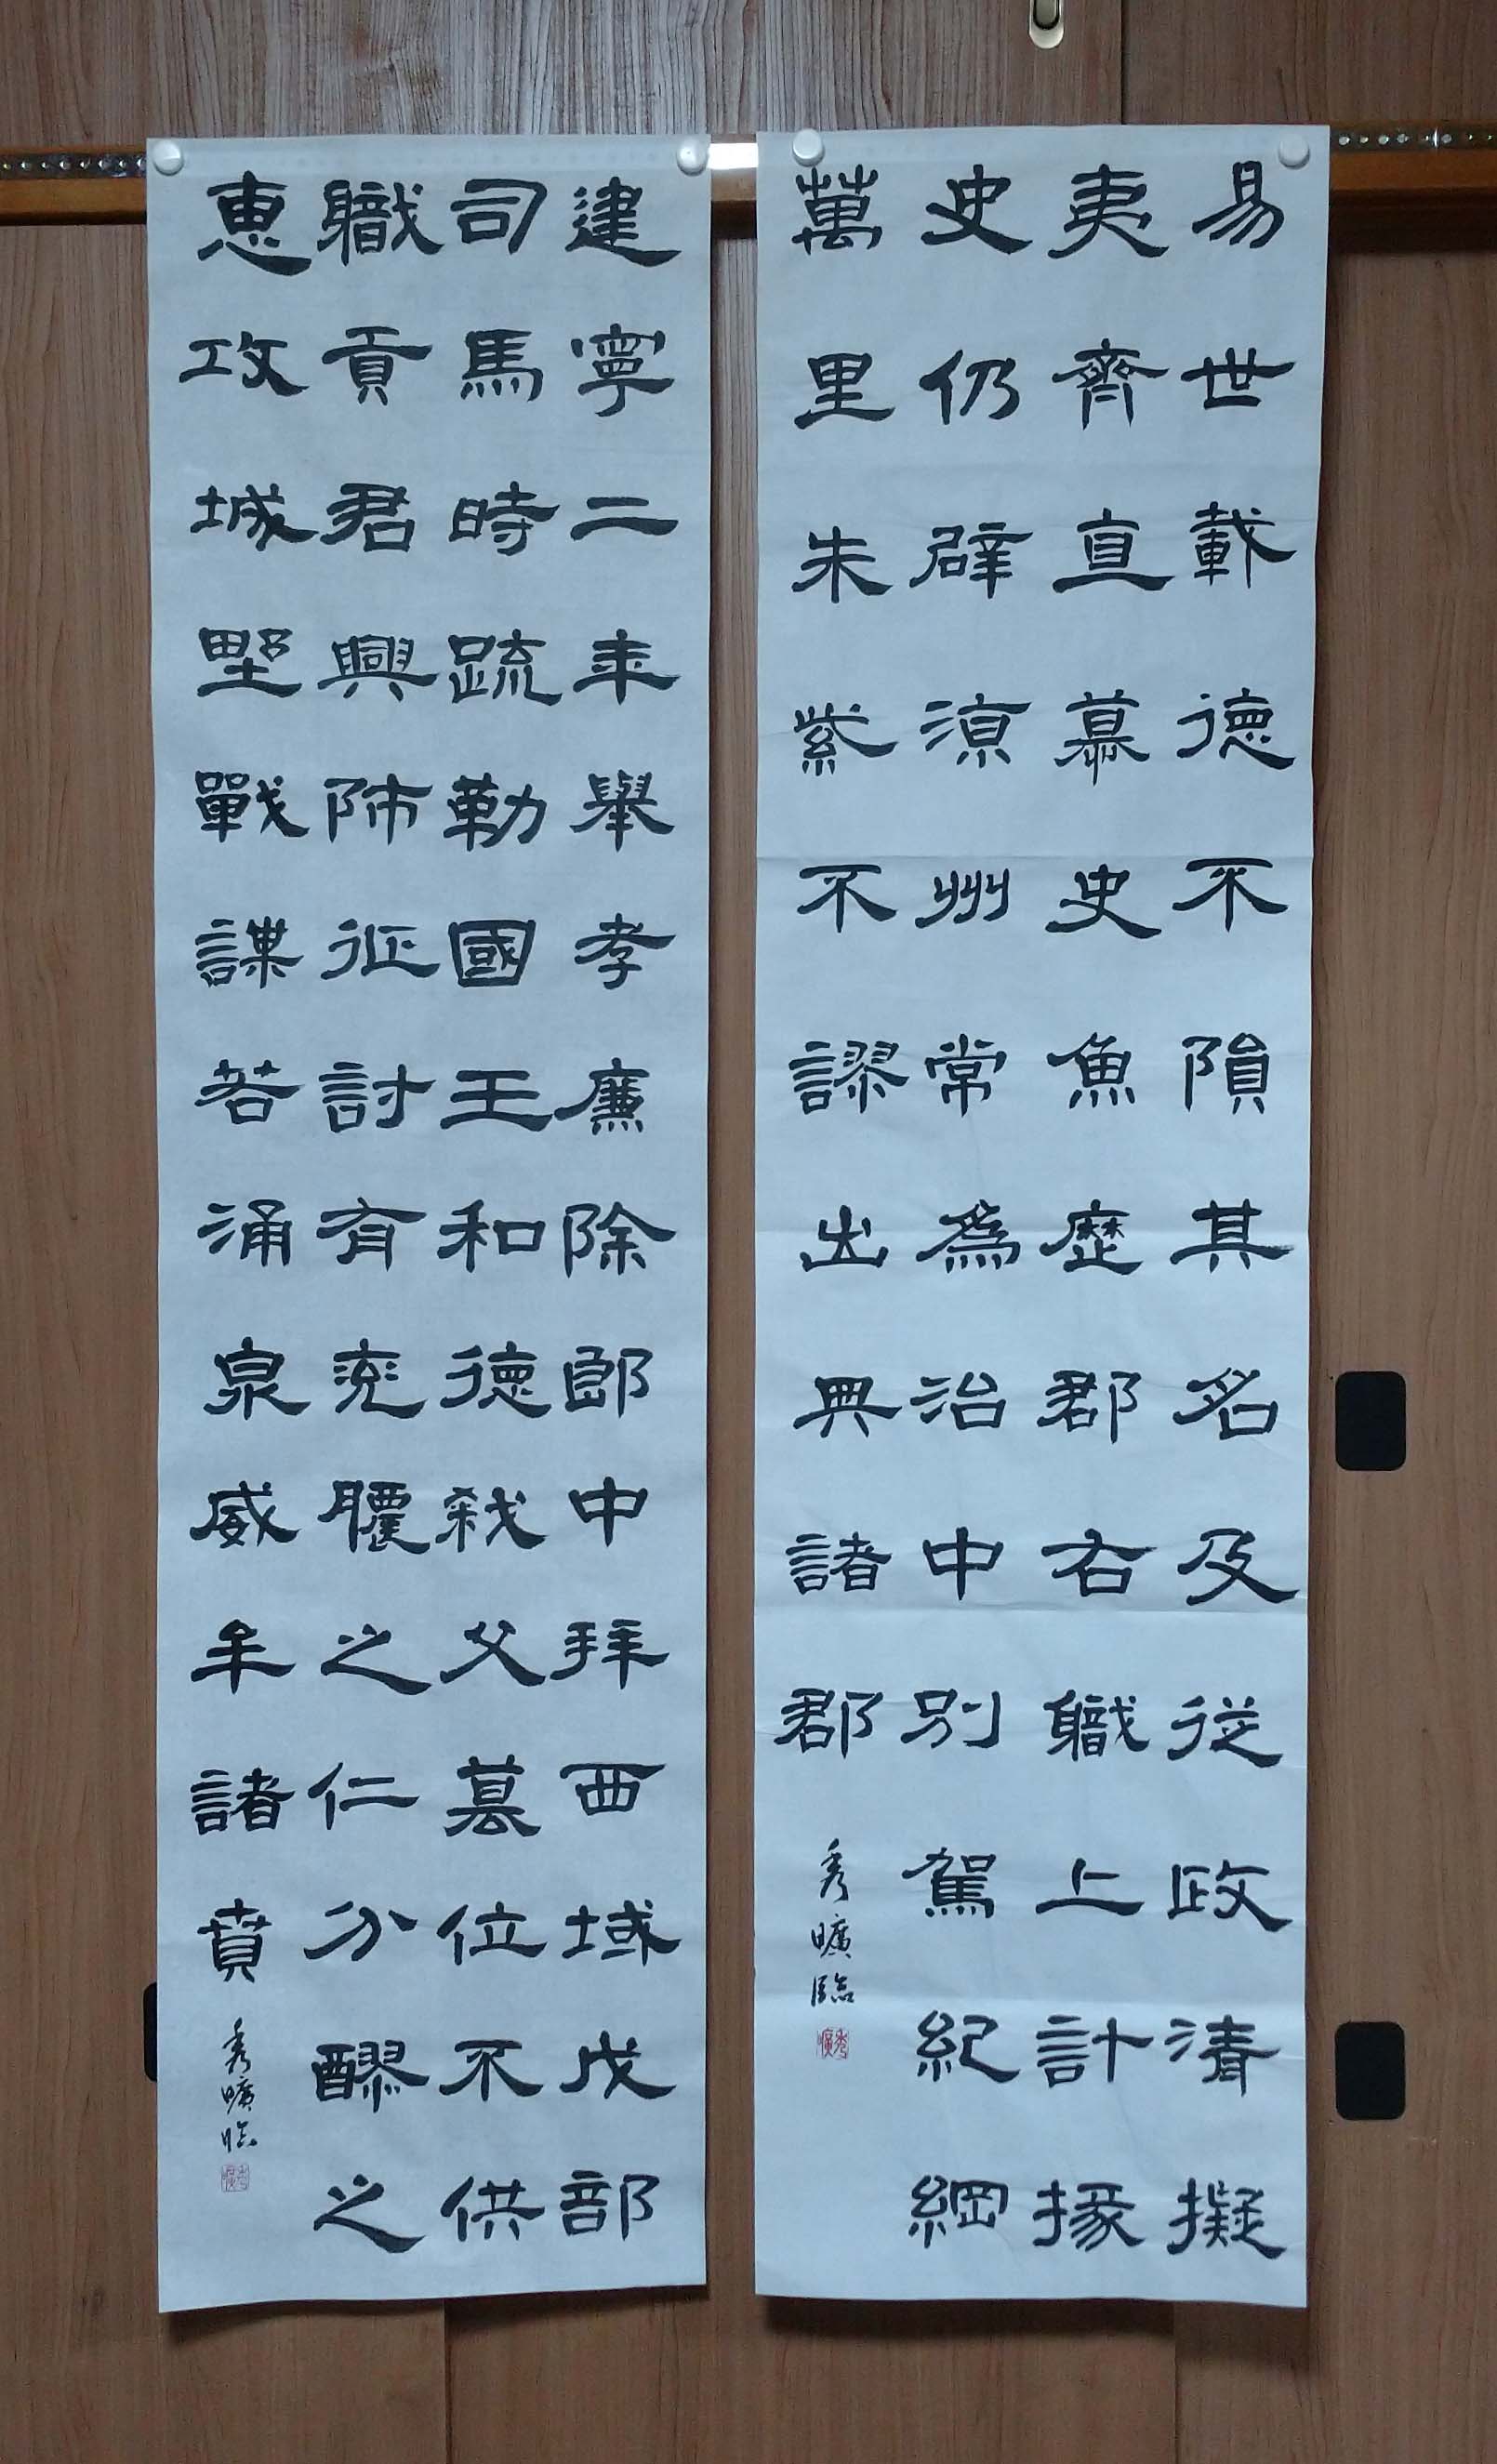 易世載德不隕其名及從政清擬
夷齊直慕史魚歷郡右職上計掾
史仍辟涼州常為治中別駕紀綱
萬里朱紫不謬出典諸郡
秀曠臨
建寧二年舉孝廉除郎中拜西域戊部
司馬時疏勒國王和德弒父篡位不供
職貢君興師征討有兖膿之仁分醪之
惠攻城野戰謀若涌泉威牟諸賁
秀曠臨